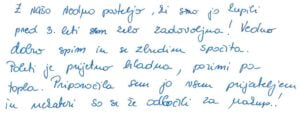 Z našo vodno posteljo, ki smo jo kupili
pred 3. leti sem zelo zadovoljna! Vedno
dobro spim in se zbudim spočita.
Poleti je prijetno hladna, pozimi pa
topla. Priporočila sem jo vsem prijateljem
in nekateri so se že odločili za nakup..!